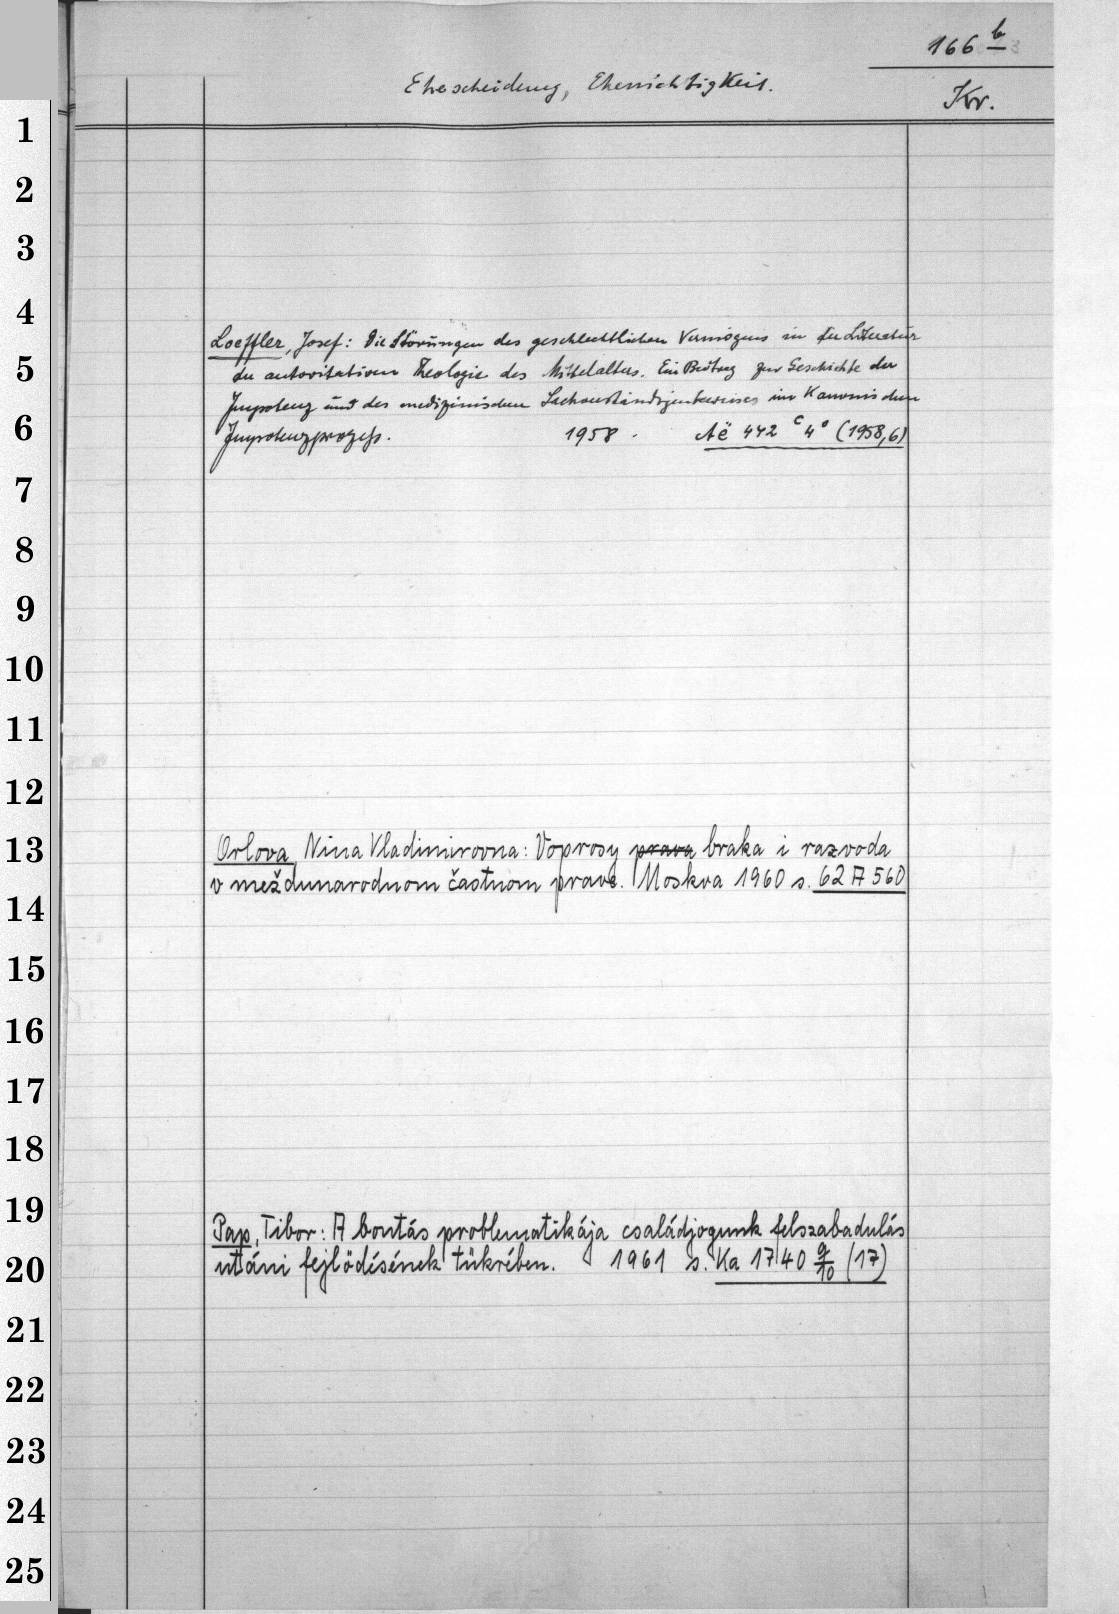 166 b
Ehescheidung, Ehenichtigkeit.
Kr.
1
2
3
4
Loeffler, Josef: Die Störungen des geschlechtlichen Vermögens in der Literatur
5
der autoritativen Theologie des Mittelalters. Ein Beitrag zur Geschichte der
Impotenz und des medizinischen Sachverständigenbeweises im Kanonischen
6
Impotenzprozess. 1958. Aë 442 c 4° (1958,6)
7
8
9
10
11
12
13
Orlova, Nina Vladimirovna: Voprosy prava braka i razvoda
v meždunarodnom častnom prave. Moskva 1960 s. 62 A 560
14
15
16
17
18
19
Pap, Tibor: A bontás problematikája családjogunk felszabadulás
20
utáni fejlödésének tükrében. 1961 s. Ka 1740 9/10 (17)
21
22
23
24
25